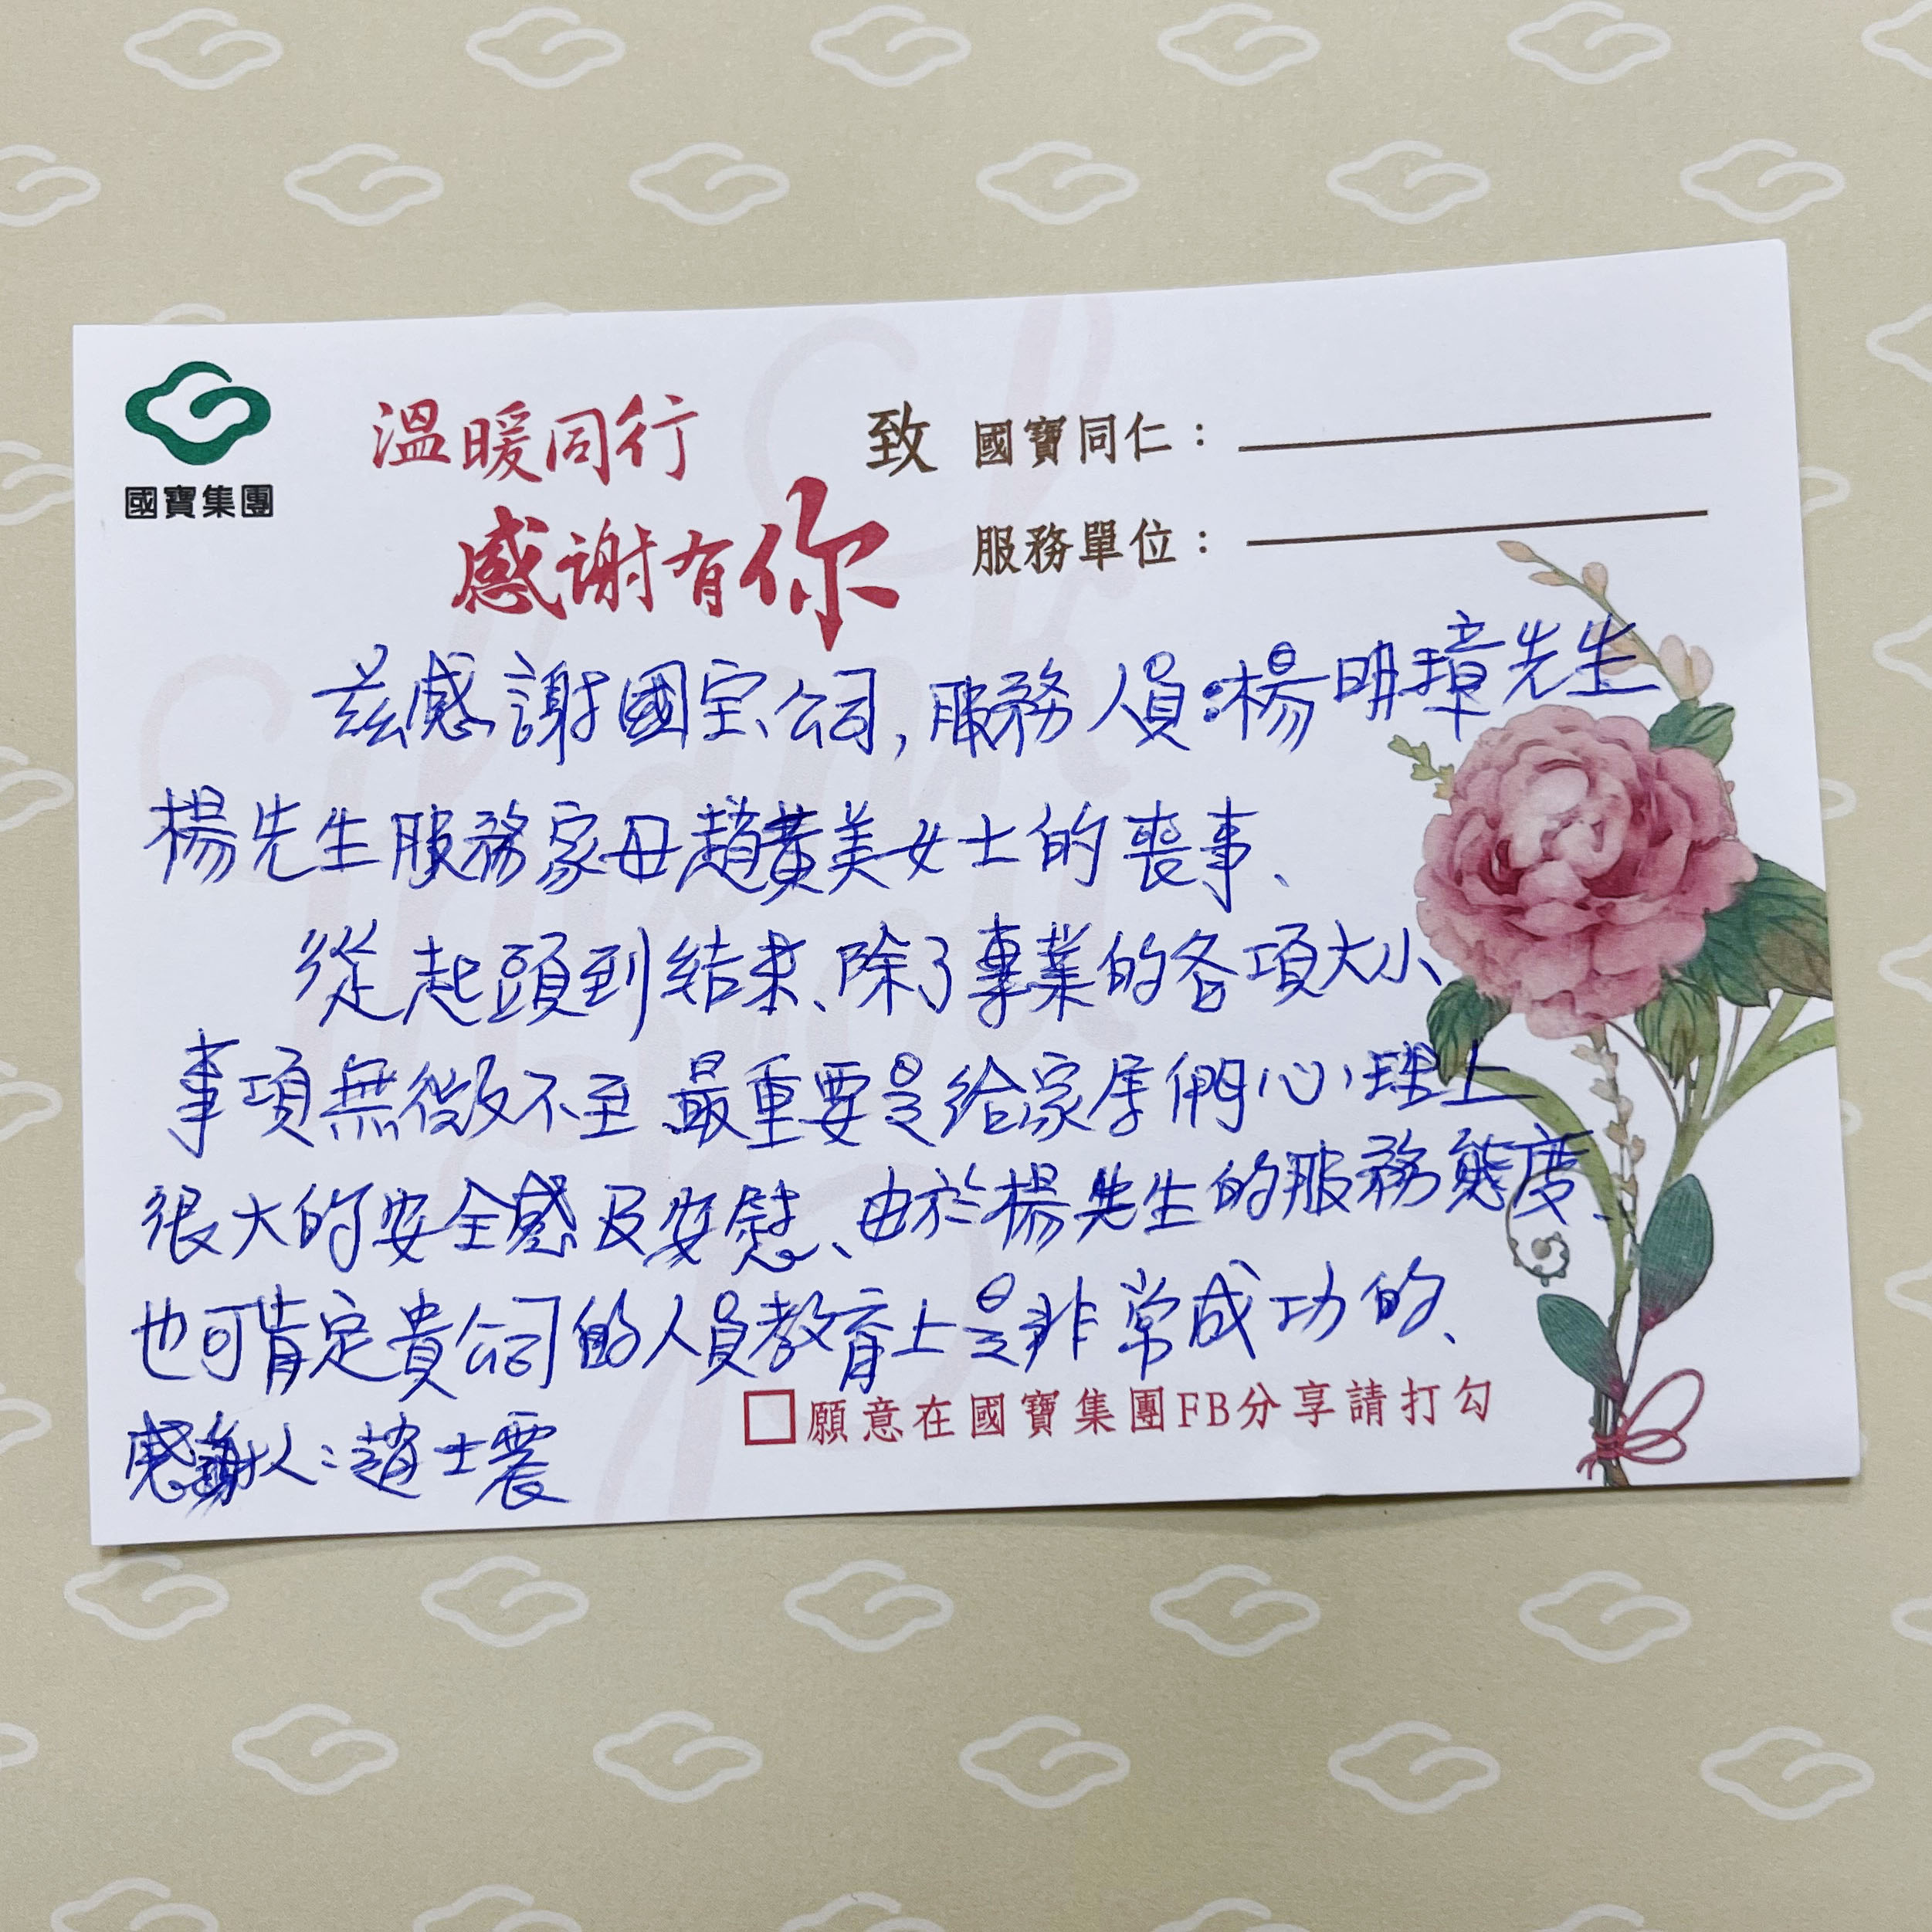 國寶集團
溫暖同行
感謝有你
致 國寶同仁：
服務單位：
茲感謝國宝公司,服務人員:楊明璋先生
楊先生服務家母趙黃美女士的喪事、
從起頭到結束、除了專業的各項大小
事項無微不至、最重要是給家屬們心理上
很大的安全感及安慰、由於楊先生的服務態度、
也可肯定貴公司的人員教育上是非常成功的、
感謝人:趙士震
□願意在國寶集團FB分享請打勾